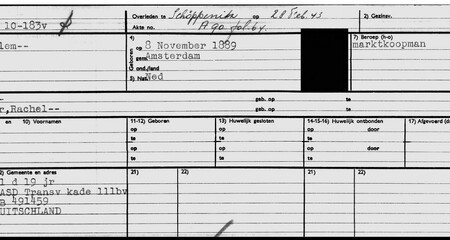 Overleden te Schöppenitz op 28 Feb 43 2) Gezinsv.
10-183v Akte no. A 90 fol. 64.
lem-- 4) op 8 November 1889 7) Beroep (h-o)
gem. Amsterdam marktkoopman
ond./land
5) Nat. Ned
geb. op te
r, Rachel-- geb. op te
en 10) Voornamen 11-12) Geboren 13) Huwelijk gesloten 14-15-16) Huwelijk ontbonden 17) Afgevoerd (d
op op op door
te te te
op op op door
te te te
) Gemeente en adres 21) 22) 21) 22)
1 d 19 jr
ASD Transv kade 111bv
B 491459
UITSCHLAND